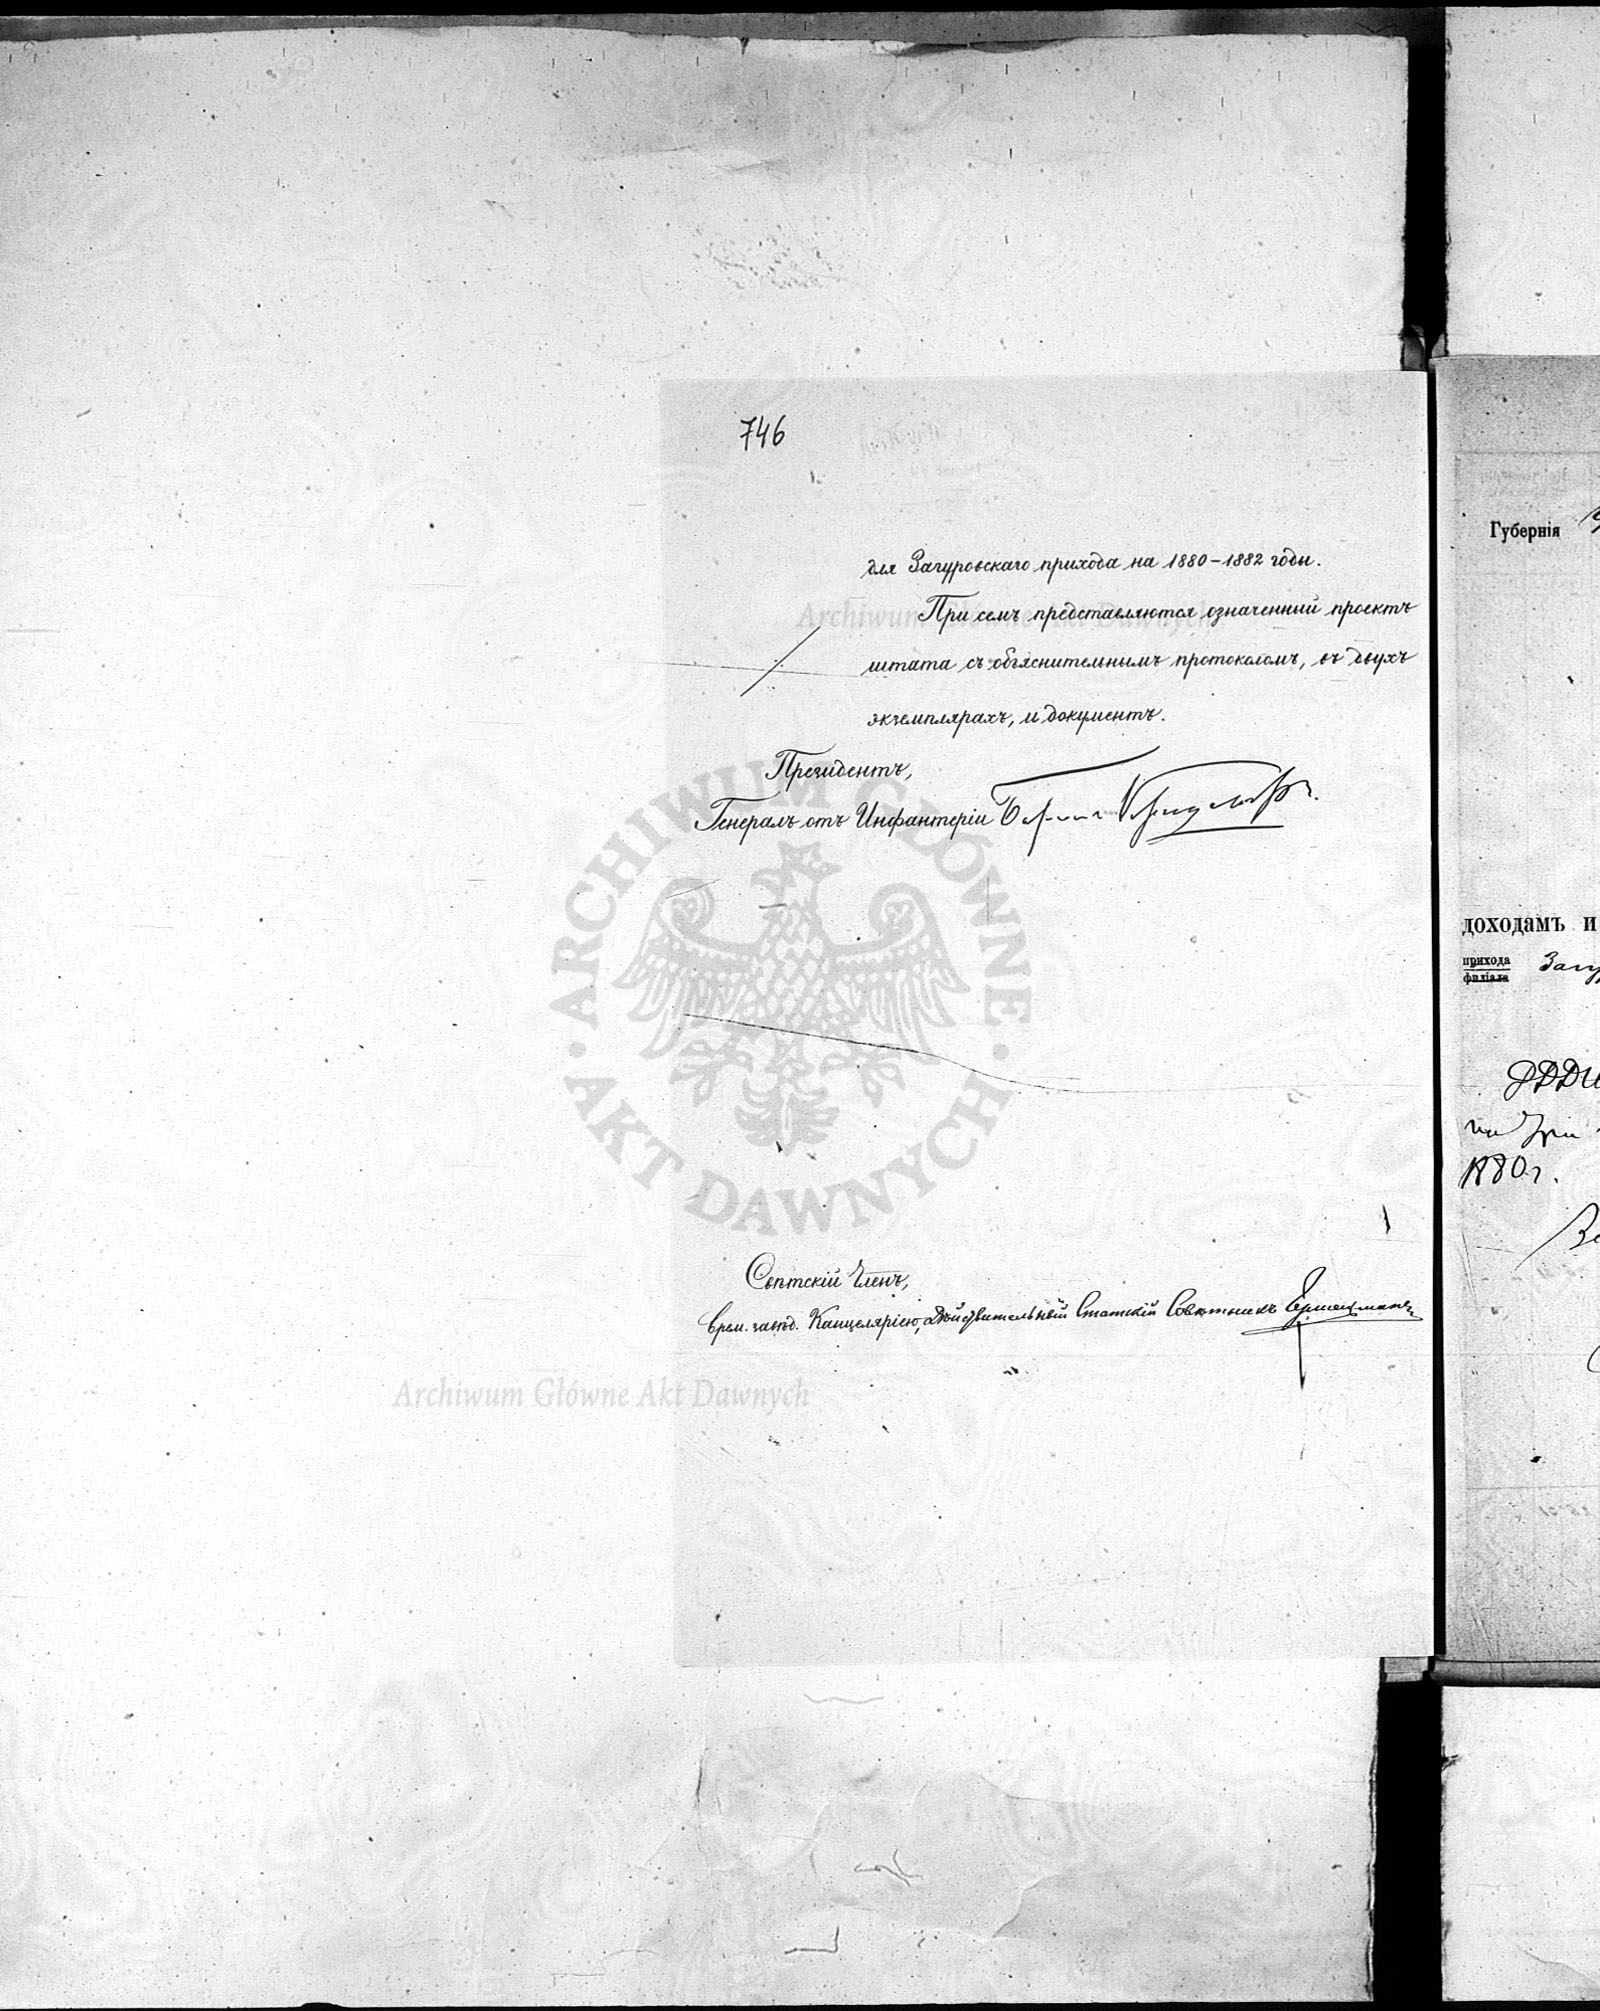 746
для Загуровскаго прихода на 1880–1882 годы.
При семъ представляются означенный проектъ
штата съ объяснительнымъ протоколомъ, въ двухъ
экземплярахъ, и документъ.
Президентъ,
Генералъ отъ Инфантеріи
Свѣтскій Членъ,
Врем. завѣд. Канцеляріею, Дѣйствительный Статскій Совѣтникъ
Archiwum Główne Akt Dawnych
ARCHIWUM GŁÓWNE · AKT DAWNYCH ·
Archiwum Główne Akt Dawnych
Губернія
доходамъ и
прихода
филіала
1880 г.